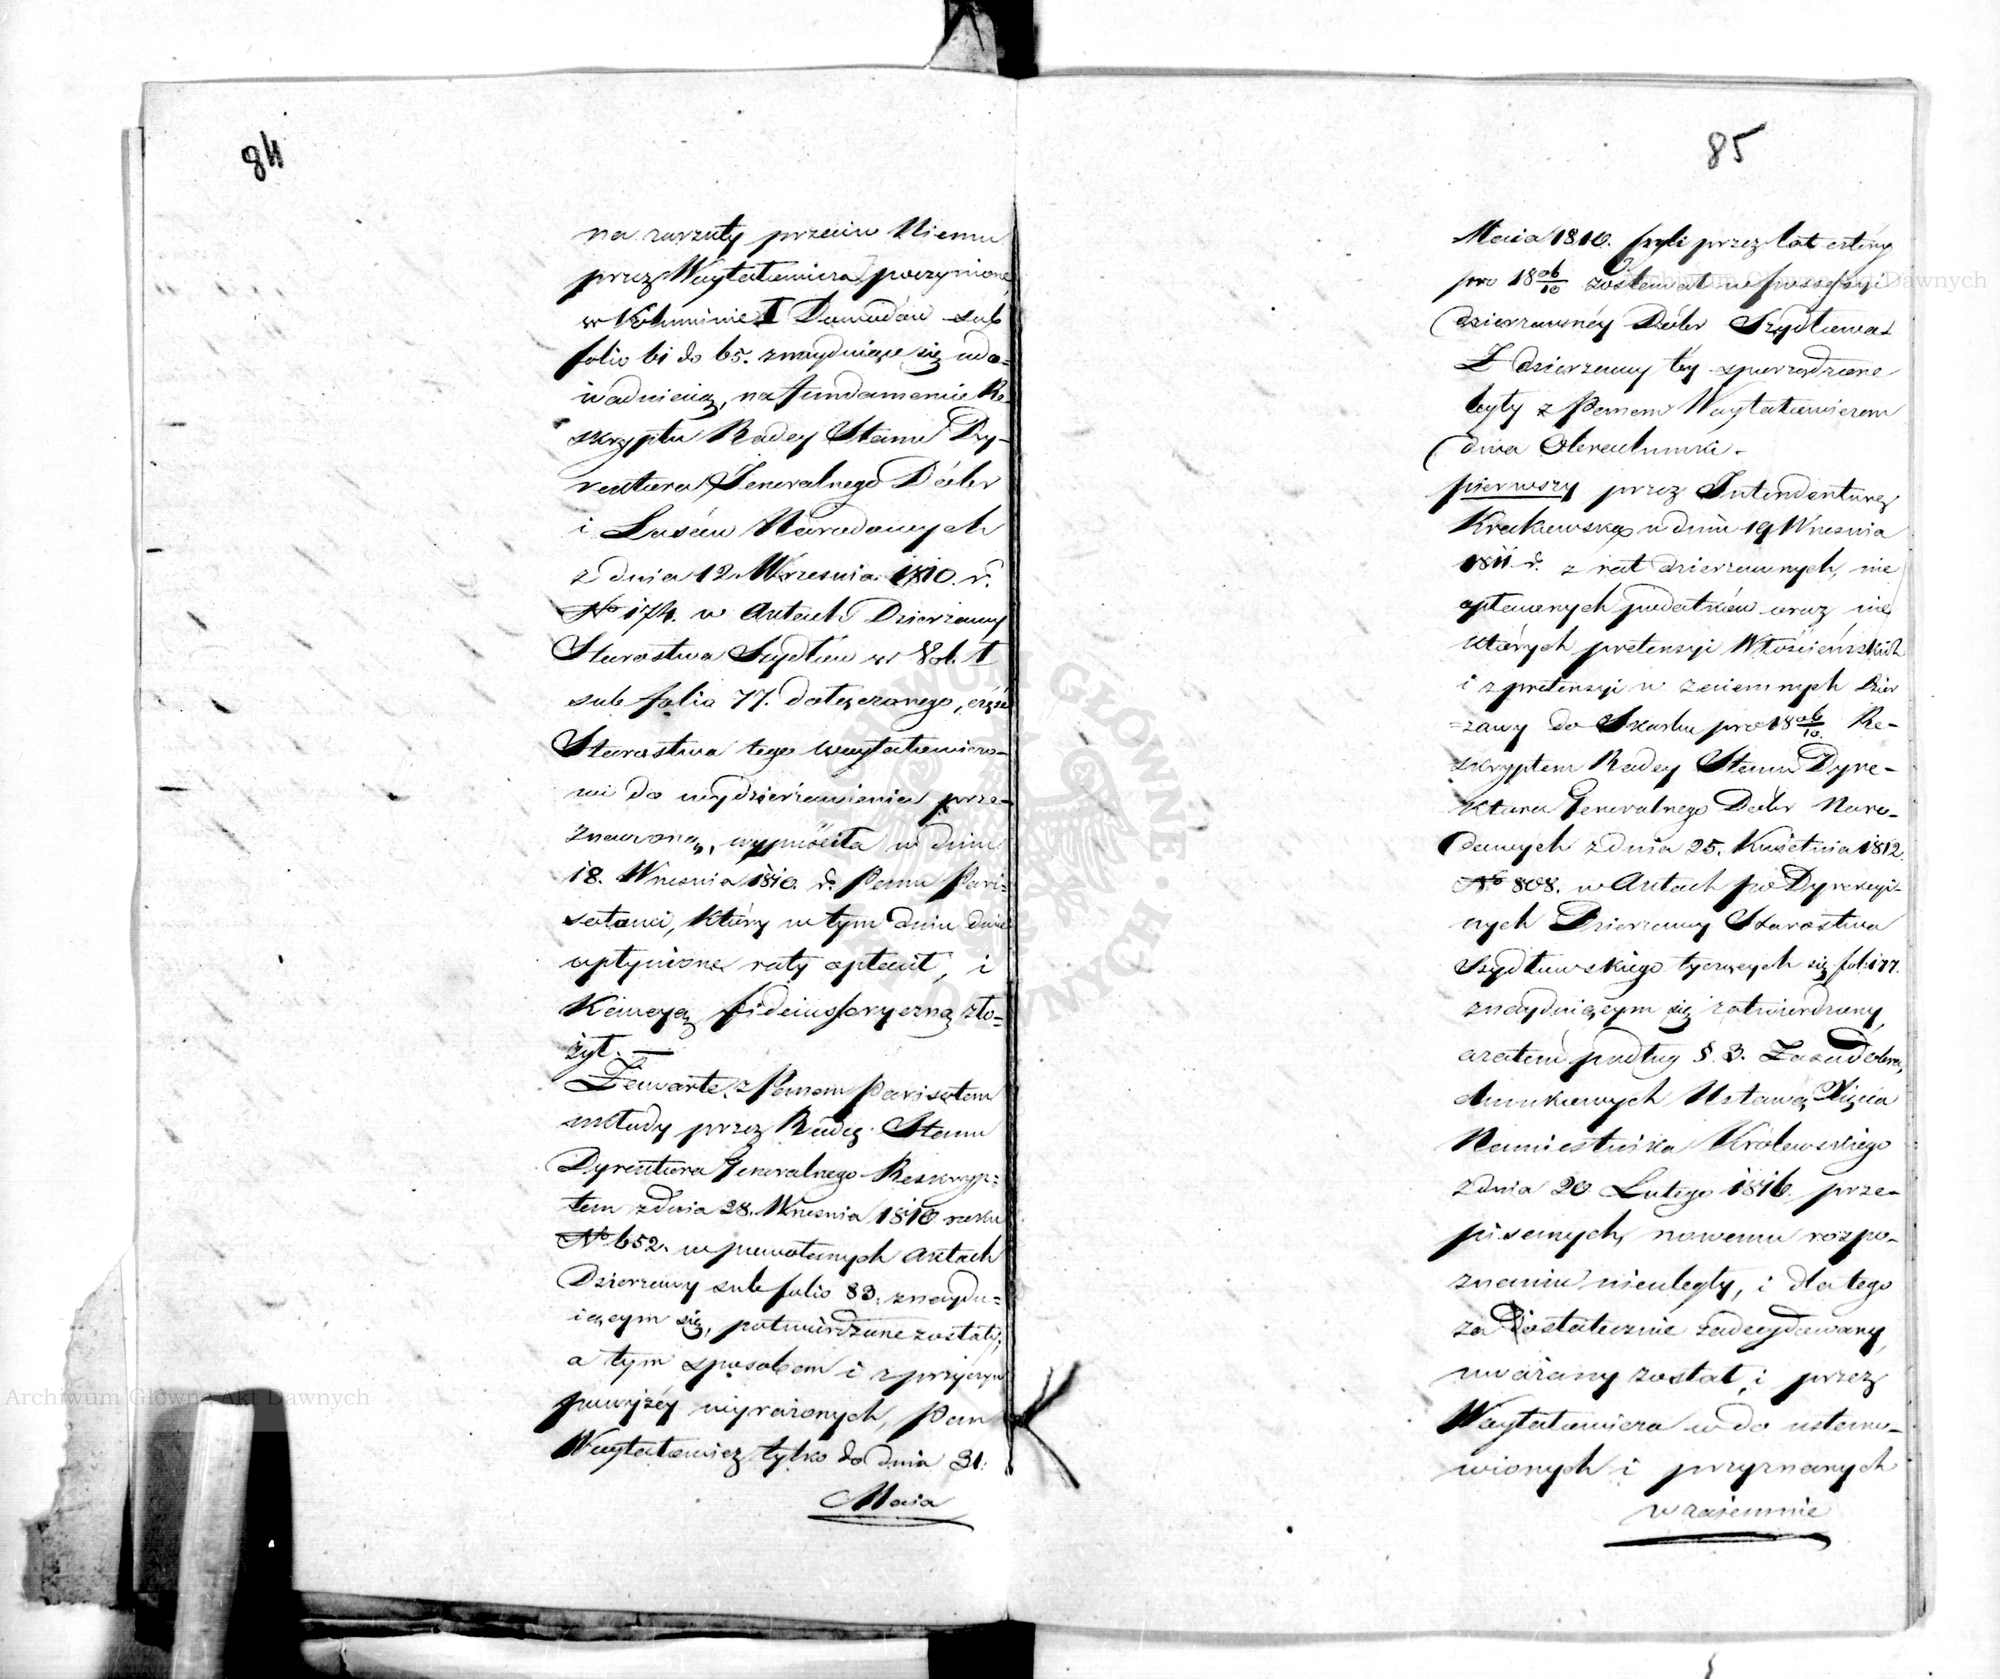 84
na zarzuty przeciw Niemu
przez Woytalewicza poczynione
w Kolumnie I Dowodów sub
folio 61 do 65. znayduiące się udo=
wadnienia, na fundamencie Re-
skryptu Radcy Stanu Dy-
rektora Generalnego Dóbr
i Lasów Narodowych
z dnia 12 Września 1810. r.
No 174. w Aktach Dzierżawy
Starostwa Szydłów w Vol. I
sub folio 77. dołączonego, część
Starostwa tego Woytalewiczo-
wi do wydzierżawienia prze-
znaczoną, wypuściła w dniu
18. Wresnia 1810. r. Panu Pari=
sotowi, który w tym dniu dwie
upłynione raty opłacił, i
Kaucyą fideiussoryczną zło=
żył. —
Zawarte z Panem Parisotem
układy przez Radcę Stanu
Dyrektora Generalnego Reskryp=
tem z dnia 28. Wresnia 1810 roku
No 652. w powołanych Aktach
Dzierzawy sub folio 83. znaydu=
iącym się, potwierdzone zostały,
a tym sposobem i z przyczyn
powyżéy wyrażonych, Pan
Woytalewicz tylko do dnia 31.
Maia
85
Maia 1810. czyli przez lat cztéry
pro 18 06/10 zostawał w possessyi
dzierzawnéy Dóbr Szydłowa.
Z dzierzawy téy sporządzone
były z Panem Woytalewiczem
dwa Obrachunki.
pierwszy przez Intendenturę
Krakowską w dniu 19 Wresnia
1811 r. z rat dzierzawnych, nie
opłaconych podatków oraz nie
których pretensyi Włościańskich
i z pretensyi w zaiemnych Dzier
=zawy do Skarbu pro 18 06/10. Re-
skryptem Radcy Stanu Dyre-
ktora Generalnego Dóbr Naro-
dowych z dnia 25. Kwietnia 1812.
No 808. w Aktach po Dyrekcyi-
nych Dzierzawy Starostwa
Szydłowskiego tyczących się fol: 177.
znayduiącym się zatwierdzony,
a zatém podług §. 3. Zasad obra,
chunkowych Ustawą Xięcia
Namiestnika Królewskiego
z dnia 20 Lutego 1816. prze-
pisanych, nowemu rozpo-
znaniu nieuległy, i dla tego
za Dostatecznie zadecydowany,
uważany został, i przez
Woytalewicza w do ustano-
wionych i przyznanych
wzaiemnie
Archiwum Główne Akt Dawnych
Archiwum Główne Akt Dawnych